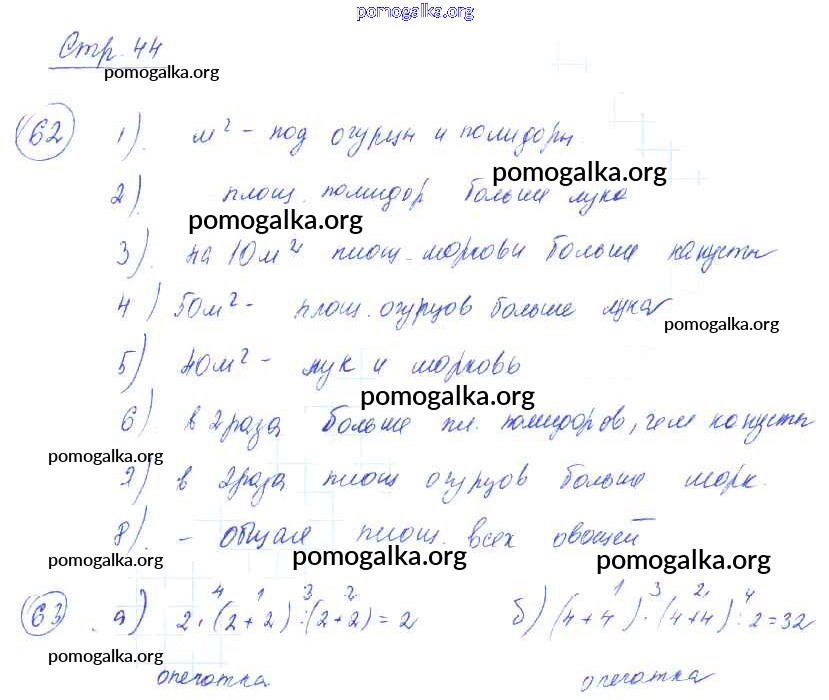 pomogalka.org
Стр. 44
pomogalka.org
62 1). м² - под огурцы и помидоры.
pomogalka.org
2). площ. помидор больше лука
pomogalka.org
3). на 10м² площ. моркови больше капусты
4) 50м² - площ. огурцов больше лука
pomogalka.org
5) 40м² - лук и морковь
pomogalka.org
6). в 2 раза больше пл. помидоров, чем капусты
pomogalka.org
7) в 2 раза площ огурцов больше морк.
8). - общая площ. всех овощей
pomogalka.org pomogalka.org pomogalka.org
4 1 3 2 1 3 2 4
63 а) 2·(2+2):(2+2)=2 б) (4+4)·(4+4):2=32
pomogalka.org
опечатка опечатка